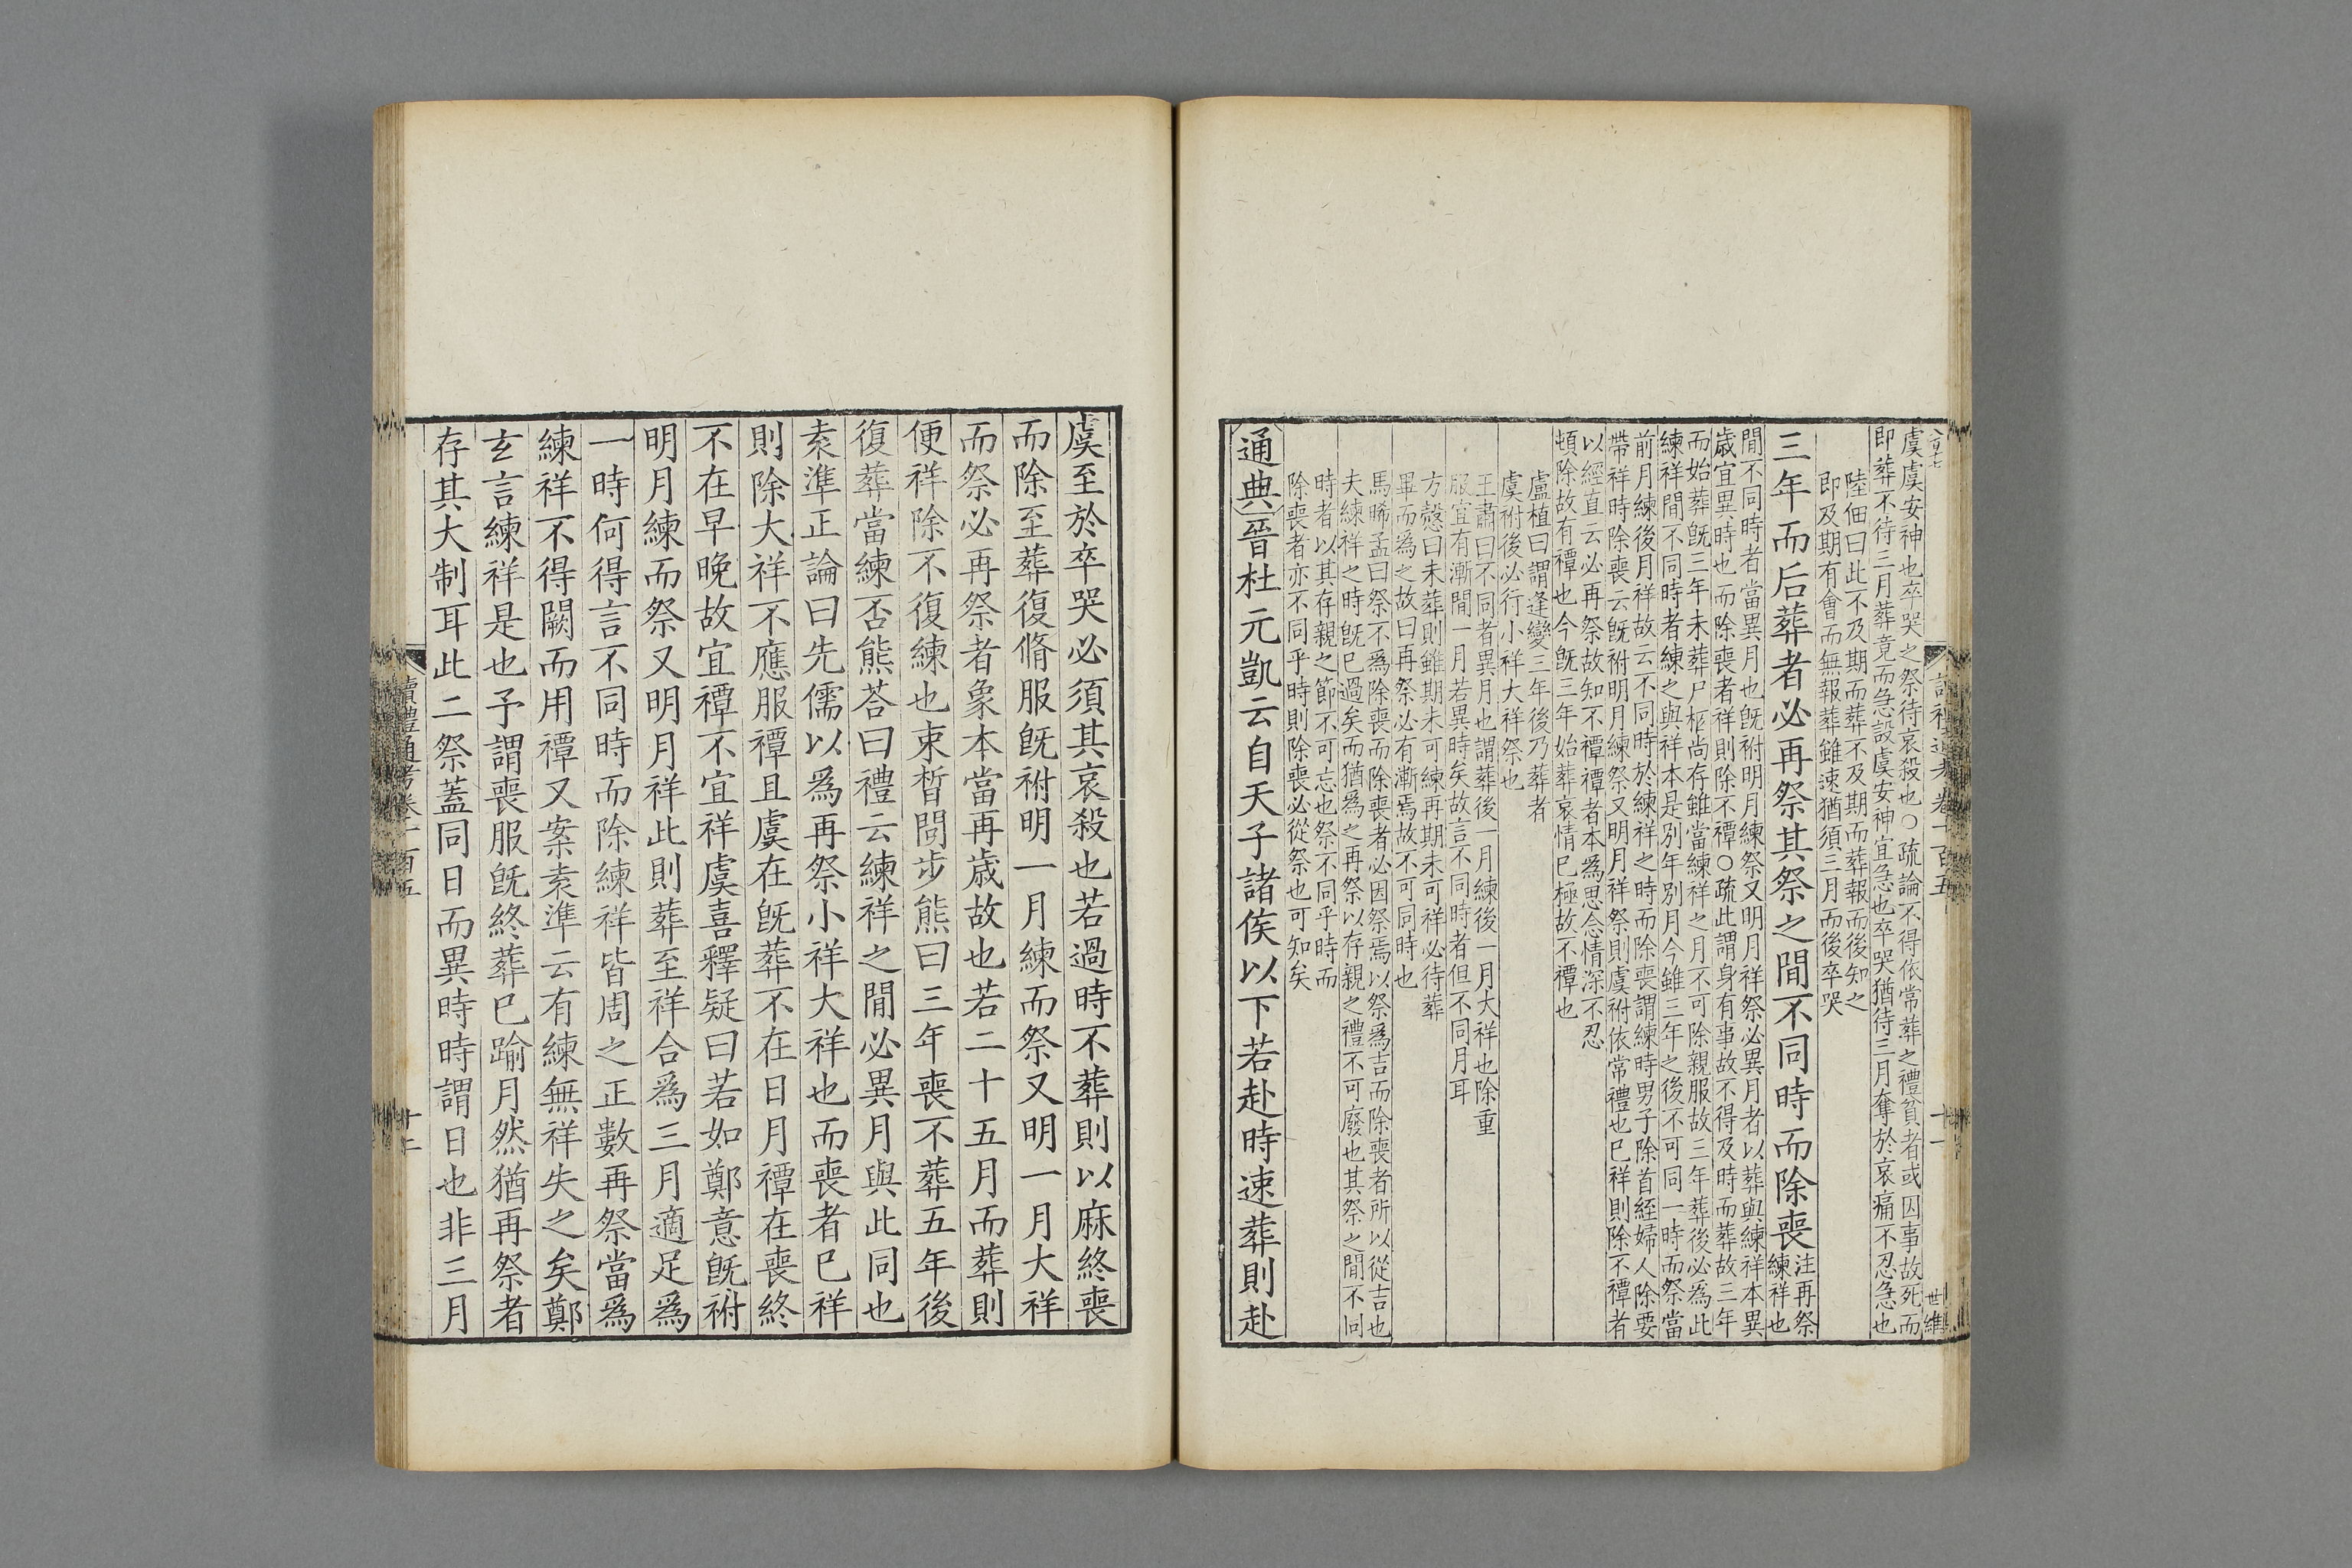 讀禮通考卷一百五
十一
虞虞安神也卒哭之祭待哀殺也○疏論不得依常葬之禮貧者或因事故死而
即葬不待三月葬竟而急設虞安神宜急也卒哭猶待三月奪於哀痛不忍急也
陸佃曰此不及期而葬不及期而葬報而後知之
即及期有會而無報葬雖速猶須三月而後卒哭
三年而后葬者必再祭其祭之間不同時而除喪
注再祭
練祥也
間不同時者當異月也旣祔明月練祭又明月祥祭必異月者以葬與練祥本異
歳宜異時也而除喪者祥則除不禫○疏此謂身有事故不得及時而葬故三年
而始葬旣三年未葬尸柩尚存雖當練祥之月不可除親服故三年葬後必爲此
練祥間不同時者練之與祥本是別年別月今雖三年之後不可同一時而祭當
前月練後月祥故云不同時於練祥之時而除喪謂練時男子除首絰婦人除要
帶祥時除喪云旣祔明月練祭又明月祥祭則虞祔依常禮也巳祥則除不禫者
以經直云必再祭故知不禫禫者本爲思念情深不忍
頓除故有禫也今旣三年始葬哀情巳極故不禫也
盧植曰謂逢變三年後乃葬者
虞祔後必行小祥大祥祭也
王肅曰不同者異月也謂葬後一月練後一月大祥也除重
服宜有漸間一月若異時矣故言不同時者但不同月耳
方慤曰未葬則雖期未可練再期未可祥必待葬
畢而爲之故曰再祭必有漸焉故不可同時也
馬晞孟曰祭不爲除喪而除喪者必因祭焉以祭爲吉而除喪者所以從吉也
夫練祥之時旣巳過矣而猶爲之再祭以存親之禮不可廢也其祭之間不同
時者以其存親之節不可忘也祭不同乎時而
除喪者亦不同乎時則除喪必從祭也可知矣
通典晉杜元凱云自天子諸侯以下若赴時速葬則赴
虞至於卒哭必須其哀殺也若過時不葬則以麻終喪
而除至葬復脩服旣祔明一月練而祭又明一月大祥
而祭必再祭者象本當再歳故也若二十五月而葬則
便祥除不復練也束晳問步熊曰三年喪不葬五年後
復葬當練否熊荅曰禮云練祥之間必異月與此同也
袁準正論曰先儒以爲再祭小祥大祥也而喪者巳祥
則除大祥不應服禫且虞在旣葬不在日月禫在喪終
不在早晚故宜禫不宜祥虞喜釋疑曰若如鄭意旣祔
明月練而祭又明月祥此則葬至祥合爲三月適足爲
一時何得言不同時而除練祥皆周之正數再祭當爲
練祥不得闕而用禫又案袁準云有練無祥失之矣鄭
玄言練祥是也予謂喪服旣終葬巳踰月然猶再祭者
存其大制耳此二祭蓋同日而異時時謂日也非三月
讀禮通考卷一百五
十二